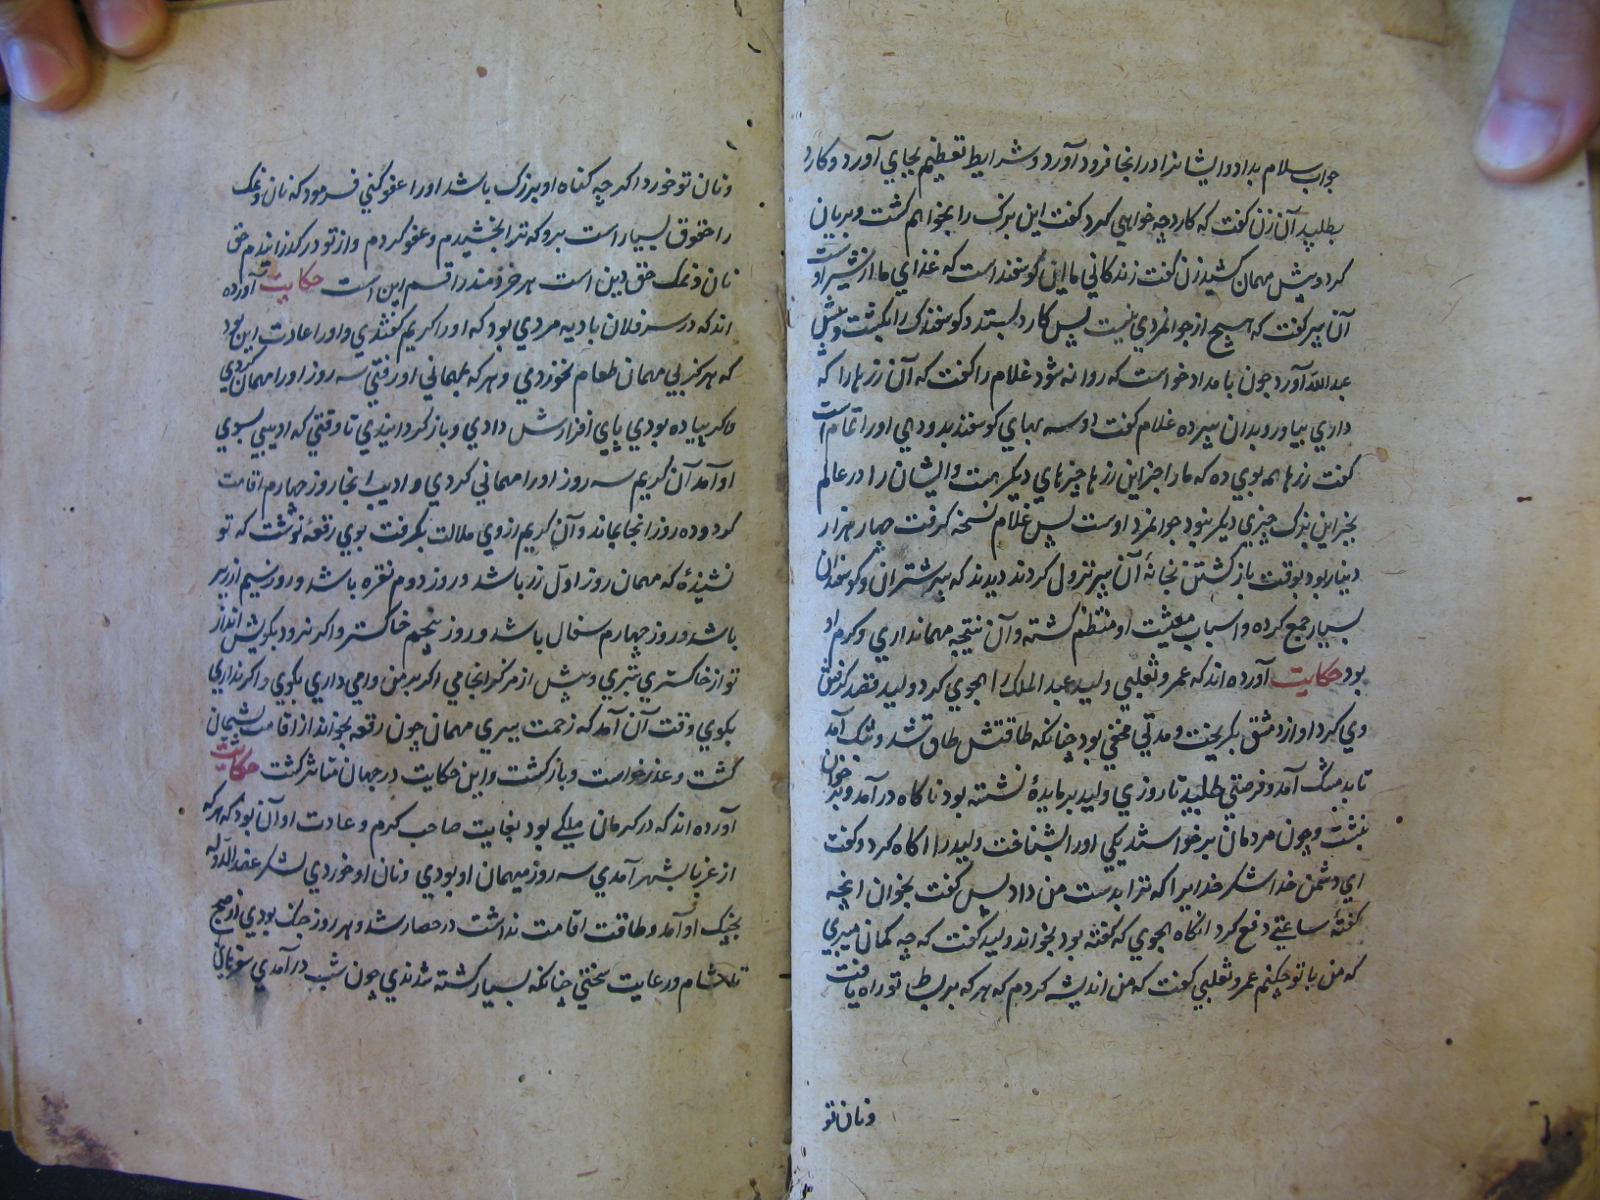 جواب سلام بداد و ایشانرا در انجا فرود آورد و شرایط تعظیم بجای آورد و کارد
بطلبید آن زن گفت که کارد چه خواهی کرد گفت این بزک را بخواهم کشت و بریان
کرد و پیش مهمان کشید زن گفت زندکانی ما این گوسفند است که غذای ما از شیر اوست
آن پیر گفت که هیچ از جوانمردی نیست پس کارد بستد و گوسفندک را بکشت و پیش
عبدالله آورد چون بامداد خواست که روانه شود غلام را گفت که آن زرها را که
داری بیاور و بدان پیر ده غلام گفت دو سه بهای گوسفند بدو دهی او را تمام است
گفت زرها همه بوی ده که ما را جز این زرها چیزهای دیگر هست و ایشان را در عالم
بجز این بزک چیزی دیگر نبود جوانمرد اوست پس غلام نسخه گرفت چهار هزار
دینار بود بوقت بازگشتن بخانهٔ آن پیر نزول کردند دیدند که پیر شتران و گوسفندان
بسیار جمع کرده و اسباب معیشت او منتظم گشته و آن نتیجه مهمانداری و کرم او
بود حکایت آورده اند که عمرو ثعلبی ولید عبد الملک را هجوی کرد ولید قصد گرفتن
وی کرد او از دمشق بگریخت و مدتی مخفی بود چنانکه طاقتش طاق شد و تنگ آمد
تا بدمشق آمد و فرصتی طلبید تا روزی ولید بر مایدهٔ نشسته بود ناگاه در آمد و بر خوان
بنشست و چون مردمان برخواستند یکی او را بشناخت ولید را آگاه کرد و گفت
ای دشمن خدا شکر خدایرا که ترا بدست من داد پس گفت بخوان انچه
گفتهٔ ساعتی دفع کرد انگاه هجوی که گفته بود بخواند ولید گفت که چه گمان میبری
که من با تو چکنم عمرو ثعلبی گفت که من اندیشه کردم که هر که بر بساط تو راه یافت
و نان تو
و نان تو خورد اگر چه گناه او بزرگ باشد او را عفو کنی فرمود که نان و نمک
را حقوق بسیار است برو که ترا بخشیدم و عفو کردم و از تو در گذرانیدم حق
نان و نمک حق دین است هر خردمند را قسم این است حکایت آورده
اند که در سر فلان بادیه مردی بود که او را کریم گفتندی و او را عادت این بود
که هرگز بی مهمان طعام نخوردی و هر که بمهمانی او رفتی سه روز او را مهمان کردی
و اگر پیاده بودی پای افزارش دادی و باز گردانیدی تا وقتی که ادیبی بسوی
او آمد آن کریم سه روز او را مهمانی کردی و ادیب انجا روز چهارم اقامت
کرد و ده روز انجا بماند و آن کریم از وی ملالت بگرفت بوی رقعهٔ نوشت که تو
نشنیدهٔ که مهمان روز اول زر باشد و روز دوم نقره باشد و روز سیم ارزیر
باشد و روز چهارم سفال باشد و روز پنجم خاکستر و اگر نرود بگویش انداز
تو از خاکستری بتری و پیش از مرگ اگر بر من وامی داری بگوی و اگر نداری
بگوی وقت آن آمد که زحمت ببری مهمان چون رقعه بخواند از اقامت پشیمان
گشت و عذر خواست و باز گشت و این حکایت در جهان متناثر گشت حکایت
آورده اند که در کرمان ملکی بود بغایت صاحب کرم و عادت او آن بود که هر که
از غربا بشهر آمدی سه روز میهمان او بودی و نان او خوردی لشکر عضدالدوله
بجنگ او آمد و طاقت اقامت نداشت در حصار شد و هر روز جنگ بودی از صبح
تا شام و رعایت سختی چنانکه بسیار کشته شدندی چون شب در آمدی